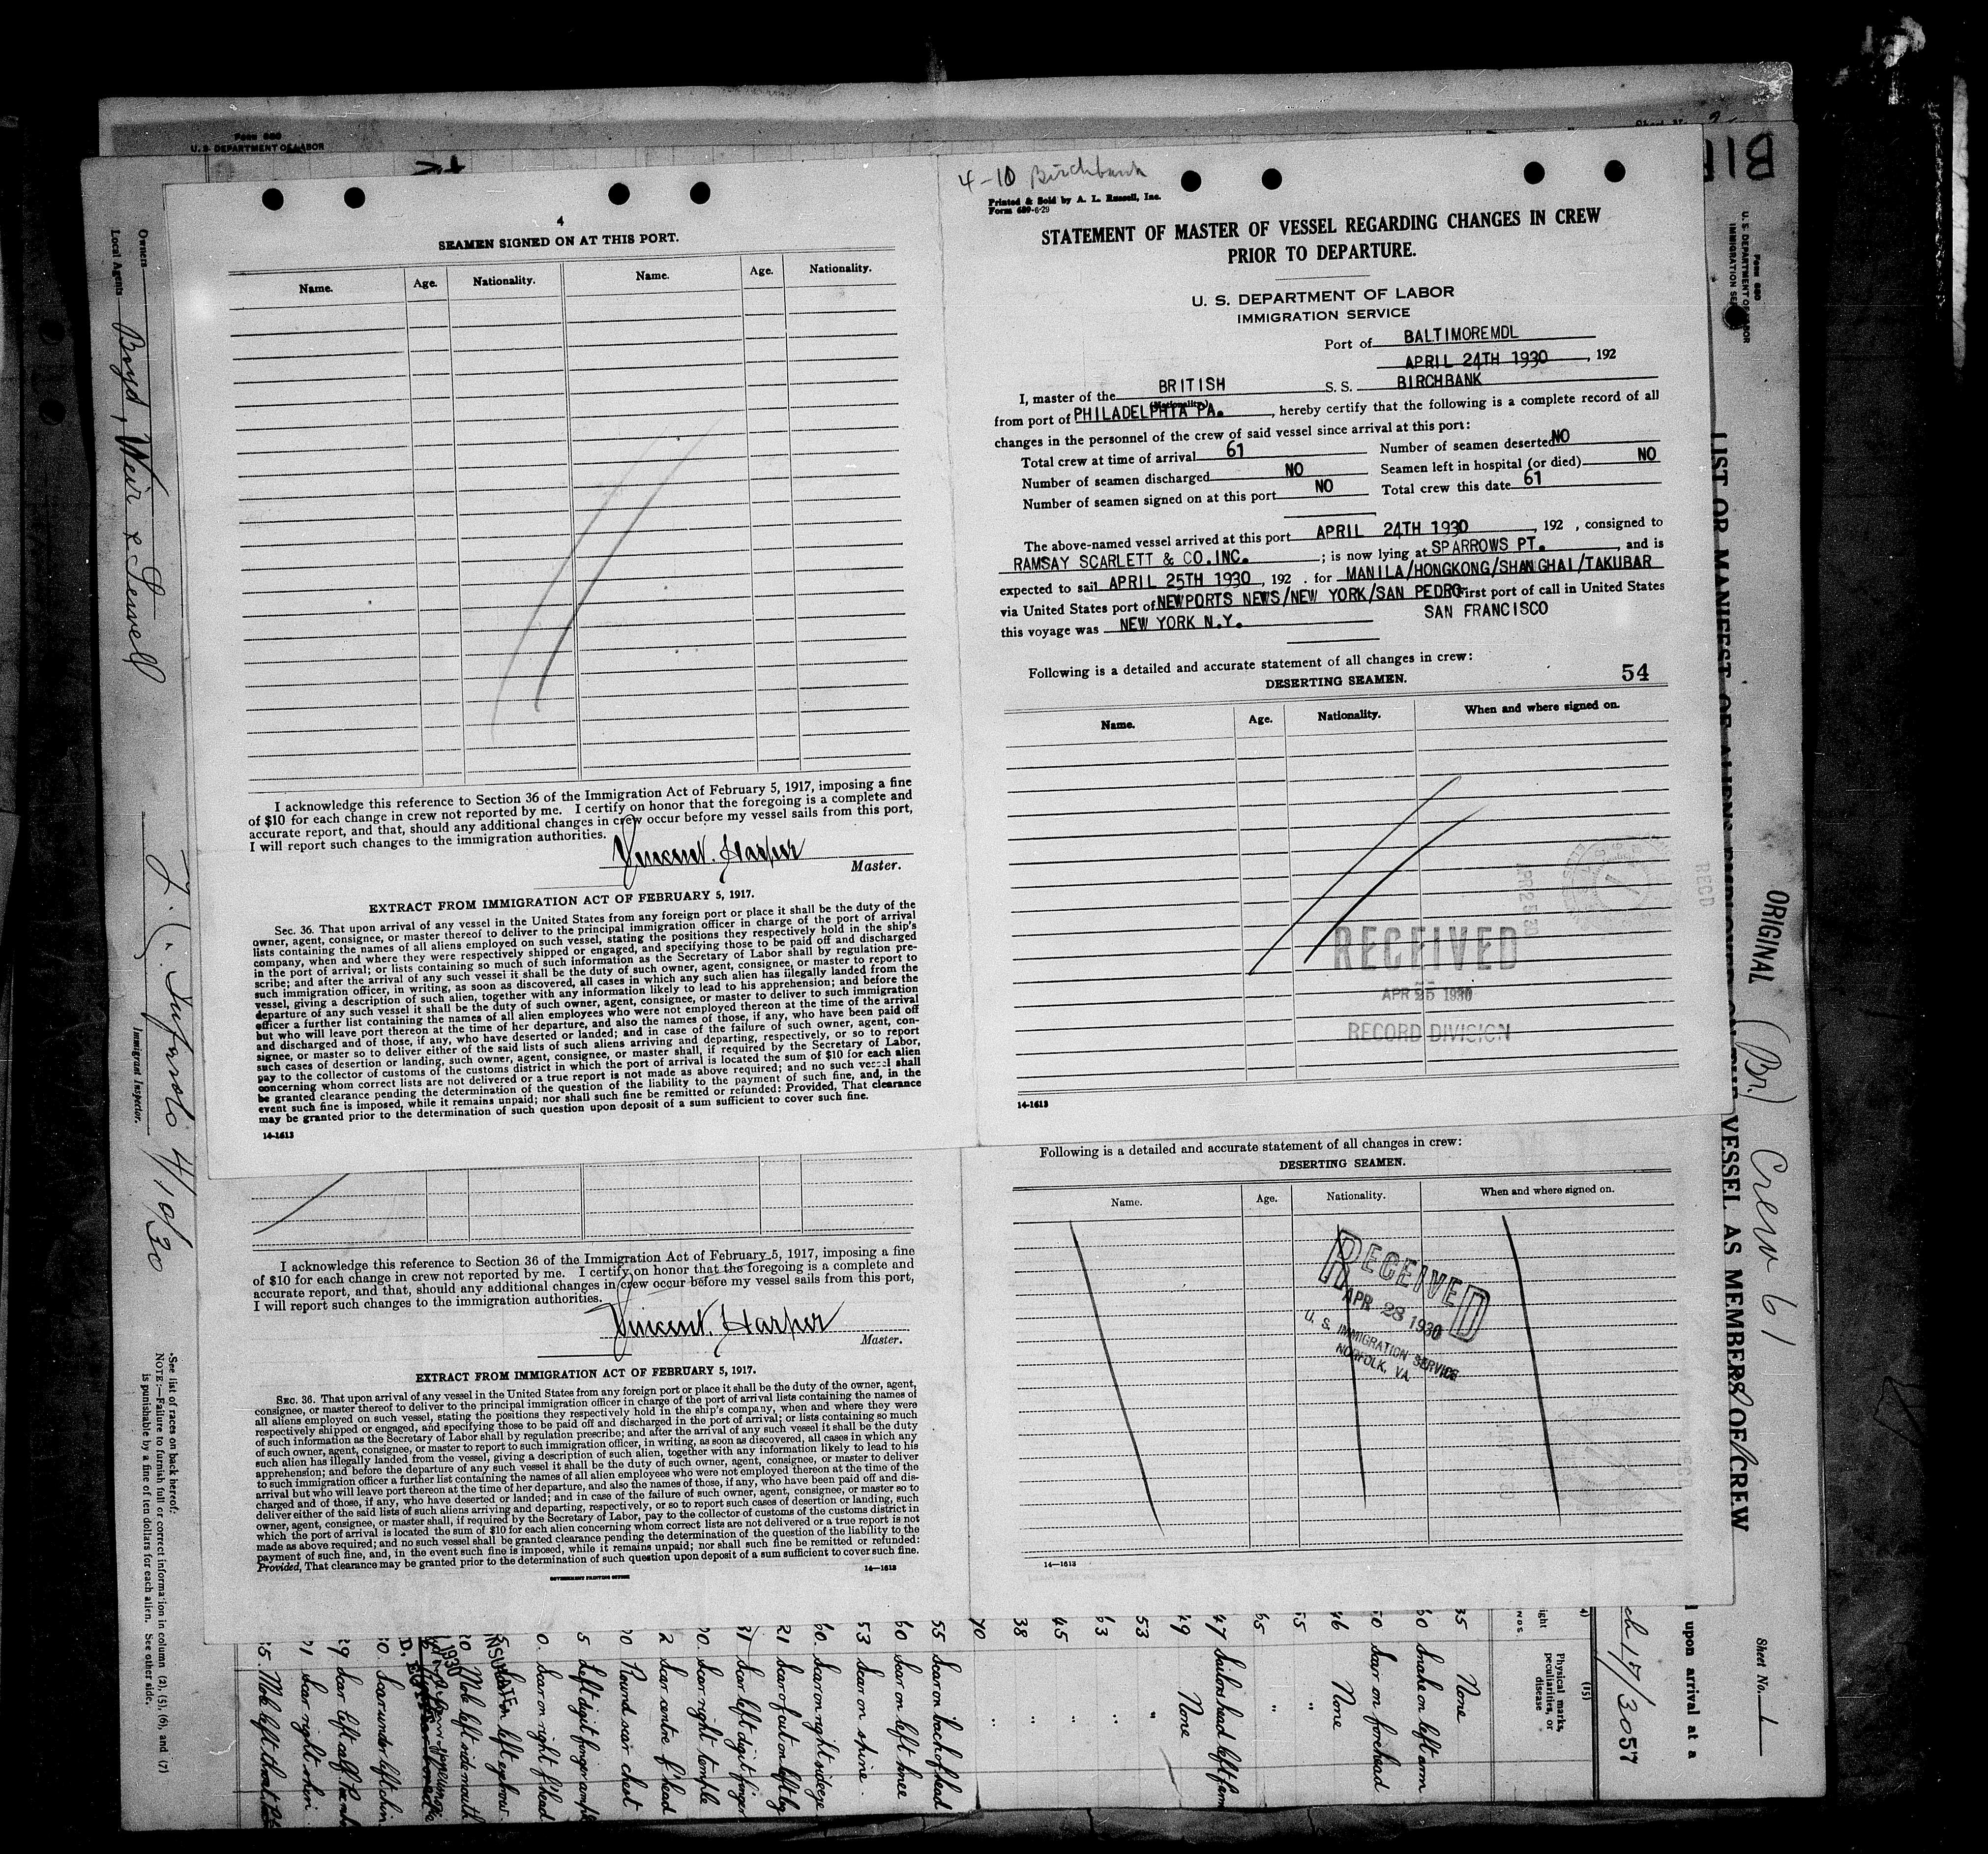 Form 680
U. S. DEPARTMENT OF LABOR
4
SEAMEN SIGNED ON AT THIS PORT.
Name. Age. Nationality. Name. Age. Nationality.
I acknowledge this reference to Section 36 of the Immigration Act of February 5, 1917, imposing a fine
of $10 for each change in crew not reported by me. I certify on honor that the foregoing is a complete and
accurate report, and that, should any additional changes in crew occur before my vessel sails from this port,
I will report such changes to the immigration authorities.
Vincent. Harper
Master.
EXTRACT FROM IMMIGRATION ACT OF FEBRUARY 5, 1917.
Sec. 36. That upon arrival of any vessel in the United States from any foreign port or place it shall be the duty of the
owner, agent, consignee, or master thereof to deliver to the principal immigration officer in charge of the port of arrival
lists containing the names of all aliens employed on such vessel, stating the positions they respectively hold in the ship's
company, when and where they were respectively shipped or engaged, and specifying those to be paid off and discharged
in the port of arrival; or lists containing so much of such information as the Secretary of Labor shall by regulation pre-
scribe; and after the arrival of any such vessel it shall be the duty of such owner, agent, consignee, or master to report to
such immigration officer, in writing, as soon as discovered, all cases in which any such alien has illegally landed from the
vessel, giving a description of such alien, together with any information likely to lead to his apprehension; and before the
departure of any such vessel it shall be the duty of such owner, agent, consignee, or master to deliver to such immigration
officer a further list containing the names of all alien employees who were not employed thereon at the time of the arrival
but who will leave port thereon at the time of her departure, and also the names of those, if any, who have been paid off
and discharged and of those, if any, who have deserted or landed; and in case of the failure of such owner, agent, con-
signee, or master so to deliver either of the said lists of such aliens arriving and departing, respectively, or so to report
such cases of desertion or landing, such owner, agent, consignee, or master shall, if required by the Secretary of Labor,
pay to the collector of customs of the customs district in which the port of arrival is located the sum of $10 for each alien
concerning whom correct lists are not delivered or a true report is not made as above required; and no such vessel shall
be granted clearance pending the determination of the question of the liability to the payment of such fine, and, in the
event such fine is imposed, while it remains unpaid; nor shall such fine be remitted or refunded: Provided, That clearance
may be granted prior to the determination of such question upon deposit of a sum sufficient to cover such fine.
14-1613
4-10 Birchbank
Printed & Sold by A. L. Russell, Inc.
Form 689-6-29
STATEMENT OF MASTER OF VESSEL REGARDING CHANGES IN CREW
PRIOR TO DEPARTURE.
U. S. DEPARTMENT OF LABOR
IMMIGRATION SERVICE
Port of BALTIMOREMDL
APRIL 24TH 1930, 192
I, master of the BRITISH S. S. BIRCHBANK
(Nationality)
from port of PHILADELPHIA PA., hereby certify that the following is a complete record of all
changes in the personnel of the crew of said vessel since arrival at this port:
Total crew at time of arrival 61 Number of seamen deserted NO
Number of seamen discharged NO Seamen left in hospital (or died) NO
Number of seamen signed on at this port NO Total crew this date 61
The above-named vessel arrived at this port APRIL 24TH 1930, 192 , consigned to
RAMSAY SCARLETT & CO.INC. ; is now lying at SPARROWS PT. , and is
expected to sail APRIL 25TH 1930, 192 . for MANILA/HONGKONG/SHANGHAI/TAKUBAR
via United States port of NEWPORTS NEWS/NEW YORK/SAN PEDRO First port of call in United States
SAN FRANCISCO
this voyage was NEW YORK N.Y.
Following is a detailed and accurate statement of all changes in crew:
54
DESERTING SEAMEN.
Name. Age. Nationality. When and where signed on.
RECEIVED
APR 25 1930
RECORD DIVISION
14-1613
I acknowledge this reference to Section 36 of the Immigration Act of February 5, 1917, imposing a fine
of $10 for each change in crew not reported by me. I certify on honor that the foregoing is a complete and
accurate report, and that, should any additional changes in crew occur before my vessel sails from this port,
I will report such changes to the immigration authorities.
Vincent. Harper
Master.
EXTRACT FROM IMMIGRATION ACT OF FEBRUARY 5, 1917.
SEC. 36. That upon arrival of any vessel in the United States from any foreign port or place it shall be the duty of the owner, agent,
consignee, or master thereof to deliver to the principal immigration officer in charge of the port of arrival lists containing the names of
all aliens employed on such vessel, stating the positions they respectively hold in the ship's company, when and where they were
respectively shipped or engaged, and specifying those to be paid off and discharged in the port of arrival; or lists containing so much
of such information as the Secretary of Labor shall by regulation prescribe; and after the arrival of any such vessel it shall be the duty
of such owner, agent, consignee, or master to report to such immigration officer, in writing, as soon as discovered, all cases in which any
such alien has illegally landed from the vessel, giving a description of such alien, together with any information likely to lead to his
apprehension; and before the departure of any such vessel it shall be the duty of such owner, agent, consignee, or master to deliver
to such immigration officer a further list containing the names of all alien employees who were not employed thereon at the time of the
arrival but who will leave port thereon at the time of her departure, and also the names of those, if any, who have been paid off and dis-
charged and of those, if any, who have deserted or landed; and in case of the failure of such owner, agent, consignee, or master so to
deliver either of the said lists of such aliens arriving and departing, respectively, or so to report such cases of desertion or landing, such
owner, agent, consignee, or master shall, if required by the Secretary of Labor, pay to the collector of customs of the customs district in
which the port of arrival is located the sum of $10 for each alien concerning whom correct lists are not delivered or a true report is not
made as above required; and no such vessel shall be granted clearance pending the determination of the question of the liability to the
payment of such fine, and, in the event such fine is imposed, while it remains unpaid; nor shall such fine be remitted or refunded:
Provided, That clearance may be granted prior to the determination of such question upon deposit of a sum sufficient to cover such fine.
14-1613
GOVERNMENT PRINTING OFFICE
Following is a detailed and accurate statement of all changes in crew:
DESERTING SEAMEN.
Name. Age. Nationality. When and where signed on.
RECEIVED
APR 28 1930
U. S. IMMIGRATION SERVICE
NORFOLK, VA.
14-1613
Owners
Local Agents Boyd, Weir & Sewell
4/10/30
Immigrant Inspector.
*See list of races on back hereof.
NOTE:—Failure to furnish full or correct information in column (2), (5), (6), and (7)
is punishable by a fine of ten dollars for each alien. See other side.
Form 680
U. S. DEPARTMENT OF LABOR
IMMIGRATION SERVICE
LIST OR MANIFEST OF ALIENS EMPLOYED ON THE VESSEL AS MEMBERS OF CREW
ORIGINAL (Br.) Crew 61
Sheet No. 1
upon arrival at a
(15)
Physical marks,
peculiarities, or
disease
35 None
60 Snake on left arm
50 Scar on forehead
46 None
55 "
65 "
47 Sailors head left f'arm
49 None
53 "
63 "
45 "
38 "
70 "
55 Scar on back of head
60 Scar on left knee
53 Scar on spine.
60. Scar on right side eye
Scar left digit finger
Scar right temple
Scar centre f'head
Round scar chest
Scar on right f'head
Mole left side mouth
Scar under left chin
Scar right shin